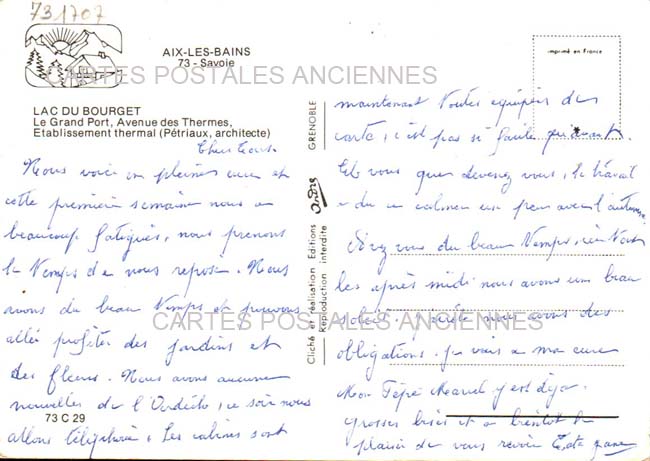 731707
AIX-LES-BAINS
73 - Savoie
CARTES POSTALES ANCIENNES
LAC DU BOURGET
Le Grand Port, Avenue des Thermes,
Etablissement thermal (Pétriaux, architecte)
Cher tous.
Nous voici en pleine cure et
cette première semaine nous a
beaucoup fatigués, nous prenons
le temps de nous reposé. Nous
avons du beau temps et pouvons
allé profiter des jardins et
des fleurs. Nous avons aucune
nouvelles de l'Ardèche, ce soir nous
allons téléphoné. Les cabines sont
73 C 29
GRENOBLE
André
Cliché et réalisation Editions
Reproduction interdite
CARTES POSTALES ANCIENNES
imprimé en France
maintenant toutes équipées de
carte, c'est pas si facile qu'avant.
Et vous que devenez vous, le travail
du calmer un peu avec l'automne
Avez vous du beau temps, ici tous
les après midi nous avons un beau
soleil, nous avons des
obligations. Je vais a ma cure
Mon Pépé Marcel y est déja.
grosses bises et a bientôt le
plaisir de vous revoir Tata